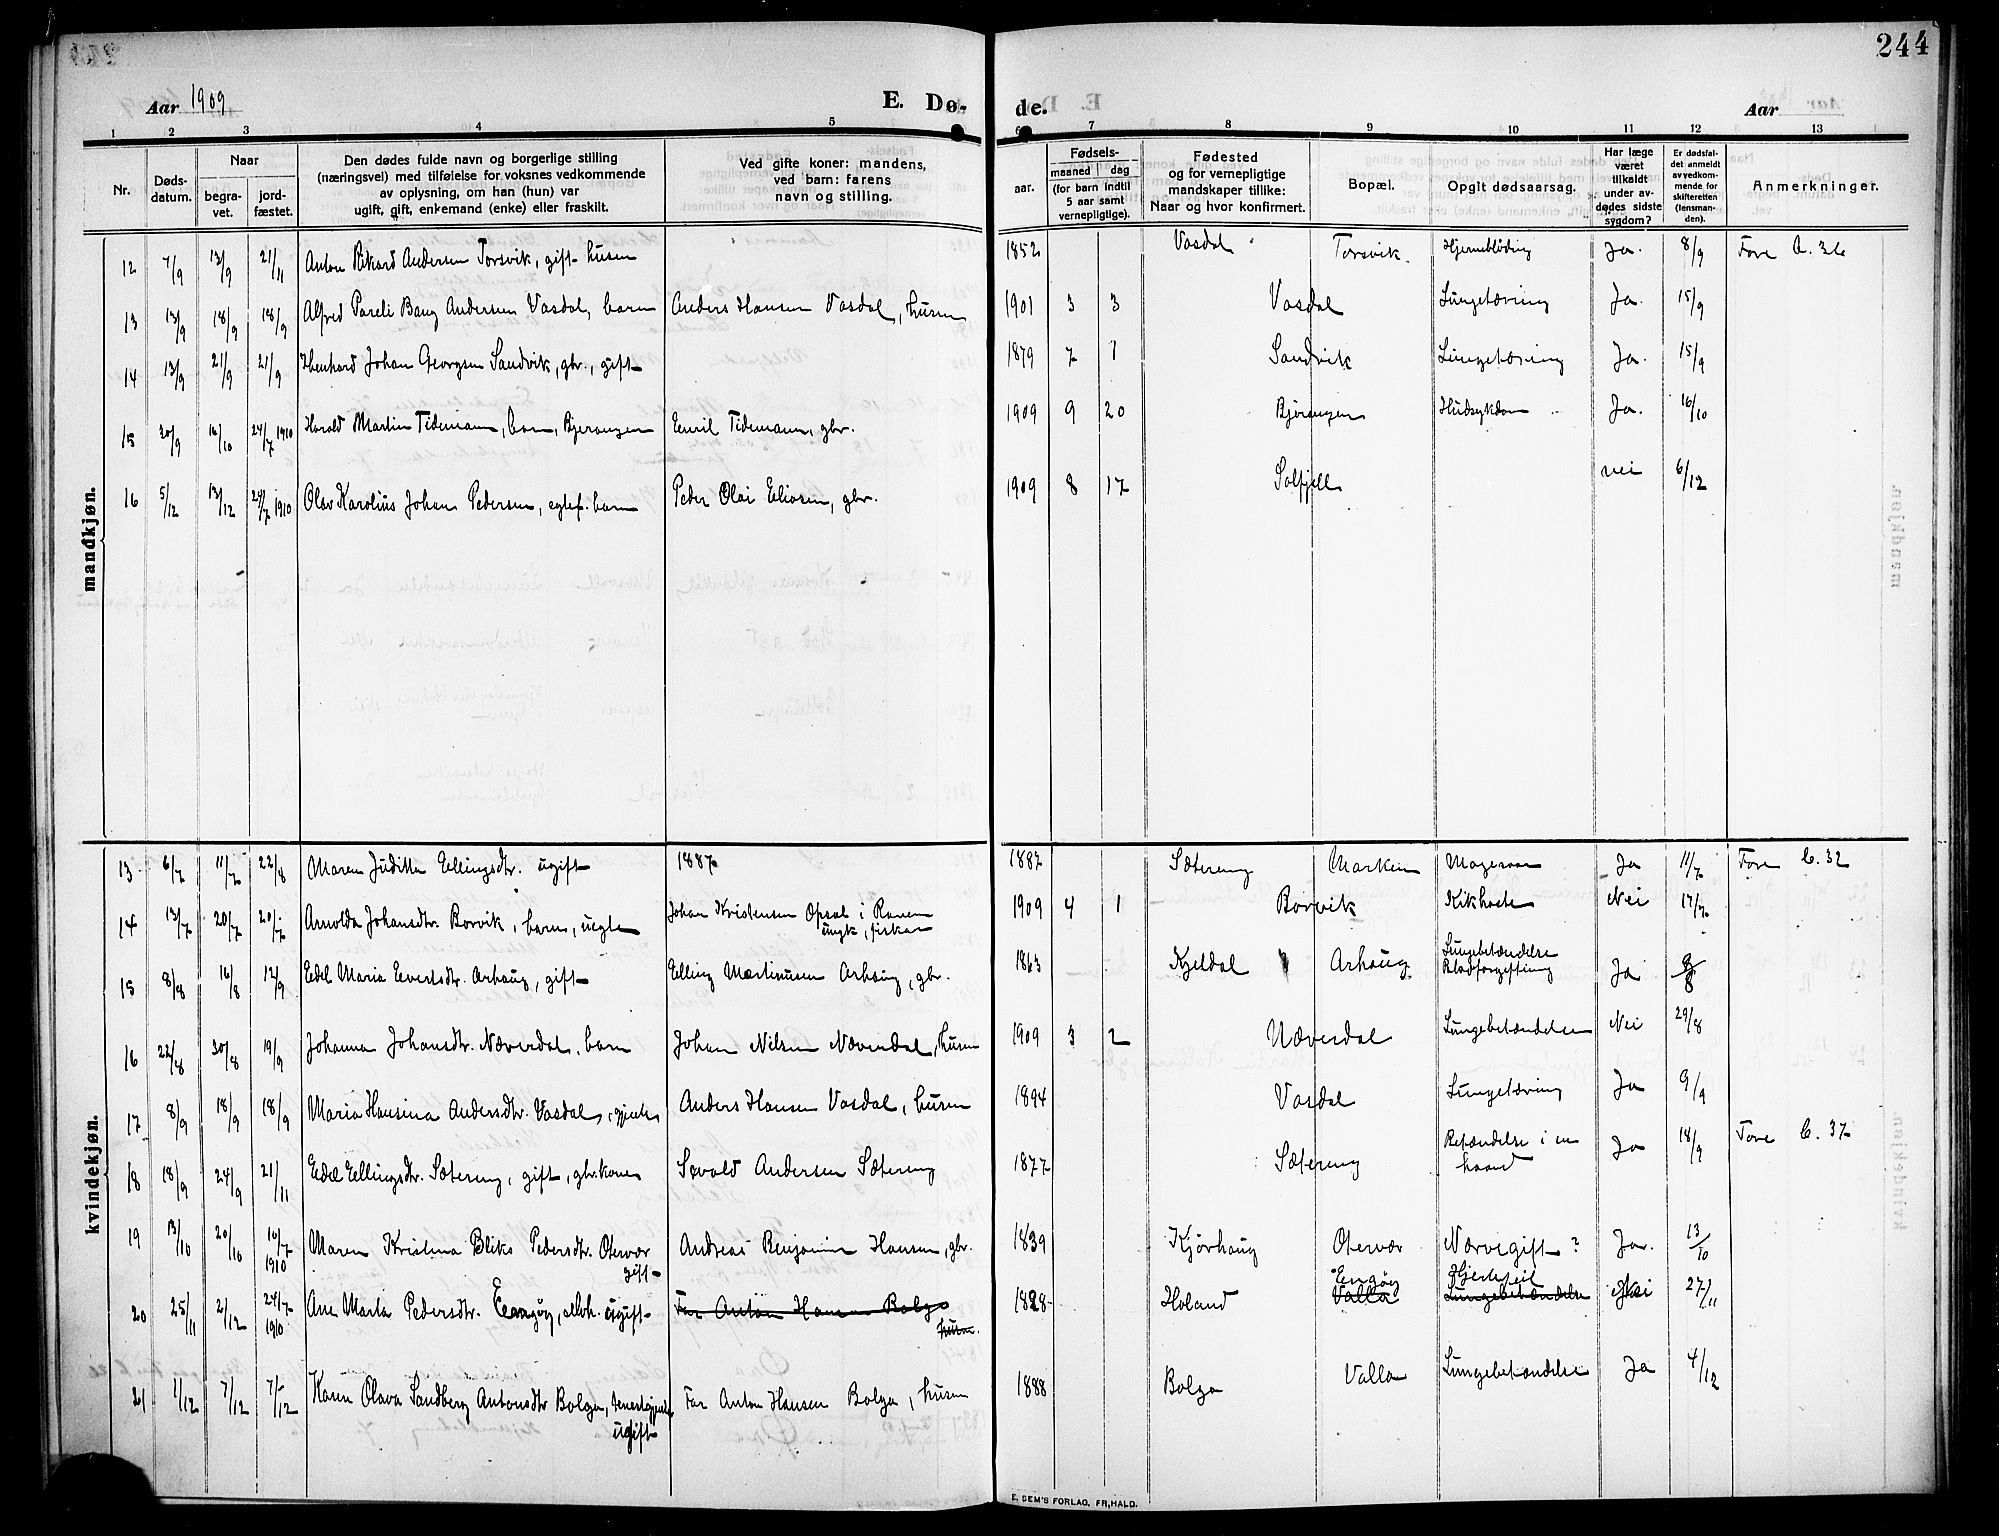 244
Aar 1909 E. Dø- de. Aar
1 2 3 4 5 6 7 8 9 10 11 12 13
Nr.
Dødsdatum.
Naar
begravet.
jordfæstet.
Den dødes fulde navn og borgerlige stilling
(næringsvei) med tilføielse for voksnes vedkommende
av oplysning, om han (hun) var
ugift, gift, enkemand (enke) eller fraskilt.
Ved gifte koner: mandens,
ved barn: farens
navn og stilling.
Fødsels-
aar. maaned dag
(for barn indtil
5 aar samt
vernepligtige).
Fødested
og for vernepligtige
mandskaper tillike:
Naar og hvor konfirmert.
Bopæl.
Opgit dødsaarsag.
Har læge
været
tilkaldt
under av-
dødes sidste
sygdom?
Er dødsfal-
det anmeldt
av vedkom-
mende for
skifteretten
(lensman-
den).
Anmerkninger.
mandkjøn.
12 7/9 13/9 21/11 Anton Rikard Andersen Torsvik, gift husm 1852 Vasdal Torsvik. Hjerneblødning Ja. 8/9 Tore A. 36
13 13/9 18/9 18/9 Alfred Pareli Bang Andersen Vasdal, barn Anders Hansen Vasdal, husm 1901 3 3 Vasdal Lungetæring Ja. 15/9
14 13/9 21/9 21/9 Johan Georgsen Sandvik, gbr., gift 1879 7 1 Sandvik Lungetæring Ja. 15/9
15 20/9 16/10 24/7 1910 Harald Martin Tidemann, barn, Bjerangen Emil Tidemann, gbr. 1909 9 20 Bjerangen Hudsykdom Ja. 16/10
16 5/12 13/12 24/7 1910 Olav Karolius Johan Pedersen, egtef. barn Peder Olai Eliasen, gbr. 1909 8 17 Solfjell nei 6/12
kvindekjøn.
13 6/7 11/7 22/8 Maren Juditta Ellingsdtr. ugift 1887 1887 Sætereng Marken Mavesaar Ja 11/7 Tore C. 32
14 13/7 20/7 20/7 Arnolda Johansdtr. Borvik, barn, uegte Johan Kristensen Opsal i Ranen
ungk, fisker 1909 4 1 Borvik Kikhoste Nei 17/7
15 8/8 16/8 12/9 Edel Maria Evertsdtr. Arhaug, gift Elling Martinusen Arhaug, gbr. 1863 Kjeldal Arhaug Lungebetændelse
Blodforgiftning Ja 9/8
16 22/8 30/8 19/9 Johanna Johansdtr. Næverdal, barn Johan Nilsen Næverdal, husm 1909 3 2 Næverdal Lungebetændelse Nei 29/8
17 8/9 18/9 18/9 Maria Hansina Andersdtr. Vasdal, gjente Anders Hansen Vasdal, husm 1894 Vasdal Lungetæring Ja 9/9
18 18/9 24/9 21/11 Edel Ellingsdtr. Sætereng, gift, gbr.kone Sevald Andersen Sætereng 1877 Sætereng Betændelse i en
haand Ja 18/9 Tore C. 37
19 13/10 20/10 10/7 1910 Maren Kristina Bliks Pedersdtr. Otervær
gift Andreas Benjamin Hansen, gbr. 1839 Kjørhaug Otervær Nærvegift? Ja. 13/10
20 25/11 2/12 24/7 1910 Ane Marta Pedersdtr. Engøy, ugift Far Anton Hansen Bolga
husm. 1828 Holand Engøy
Valla Hjertefeil
Lungebetændelse 27/11
21 1/12 7/12 7/12 Karen Olava Sandberg Antonsdtr Bolga, tenestgjente
ugift Far Anton Hansen Bolga, husm 1888 Bolga Valla Lungebetændelse Ja 4/12
E. SEM'S FORLAG, FR,HALD.